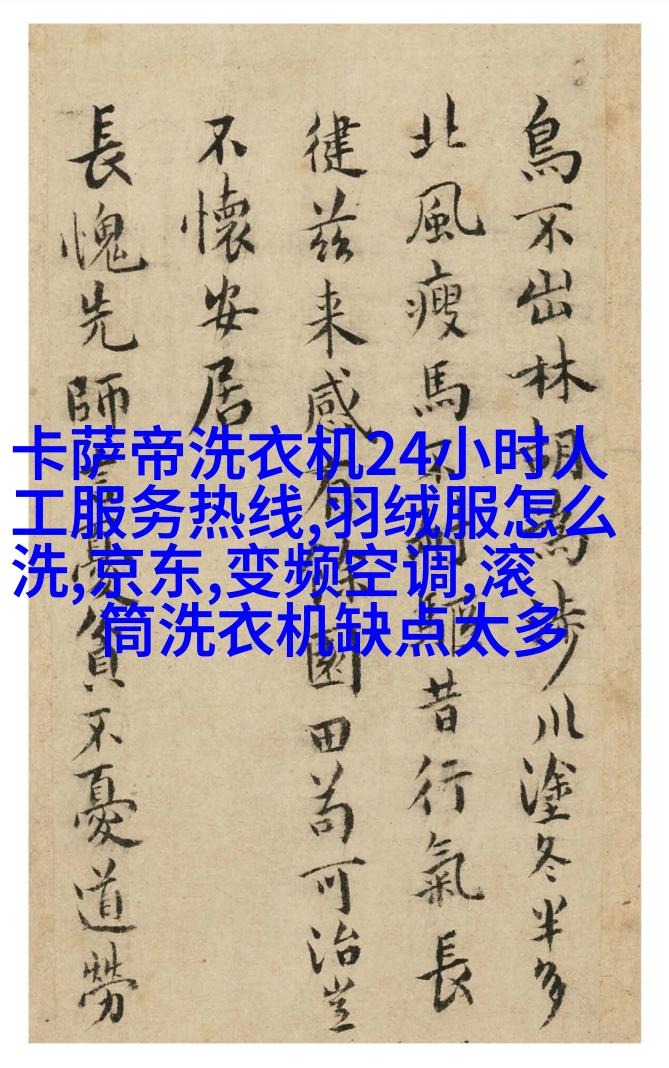 鳥不出林胡為涉川塗冬半多
北風瘦馬不驅昔行氣長
健茲来感有餘園田苟可治豈
不懷安居
長愧先師憂貧不憂道勞
卡萨帝洗衣机24小时人
工服务热线,羽绒服怎么
洗,京东,变频空调,滚
筒洗衣机缺点太多